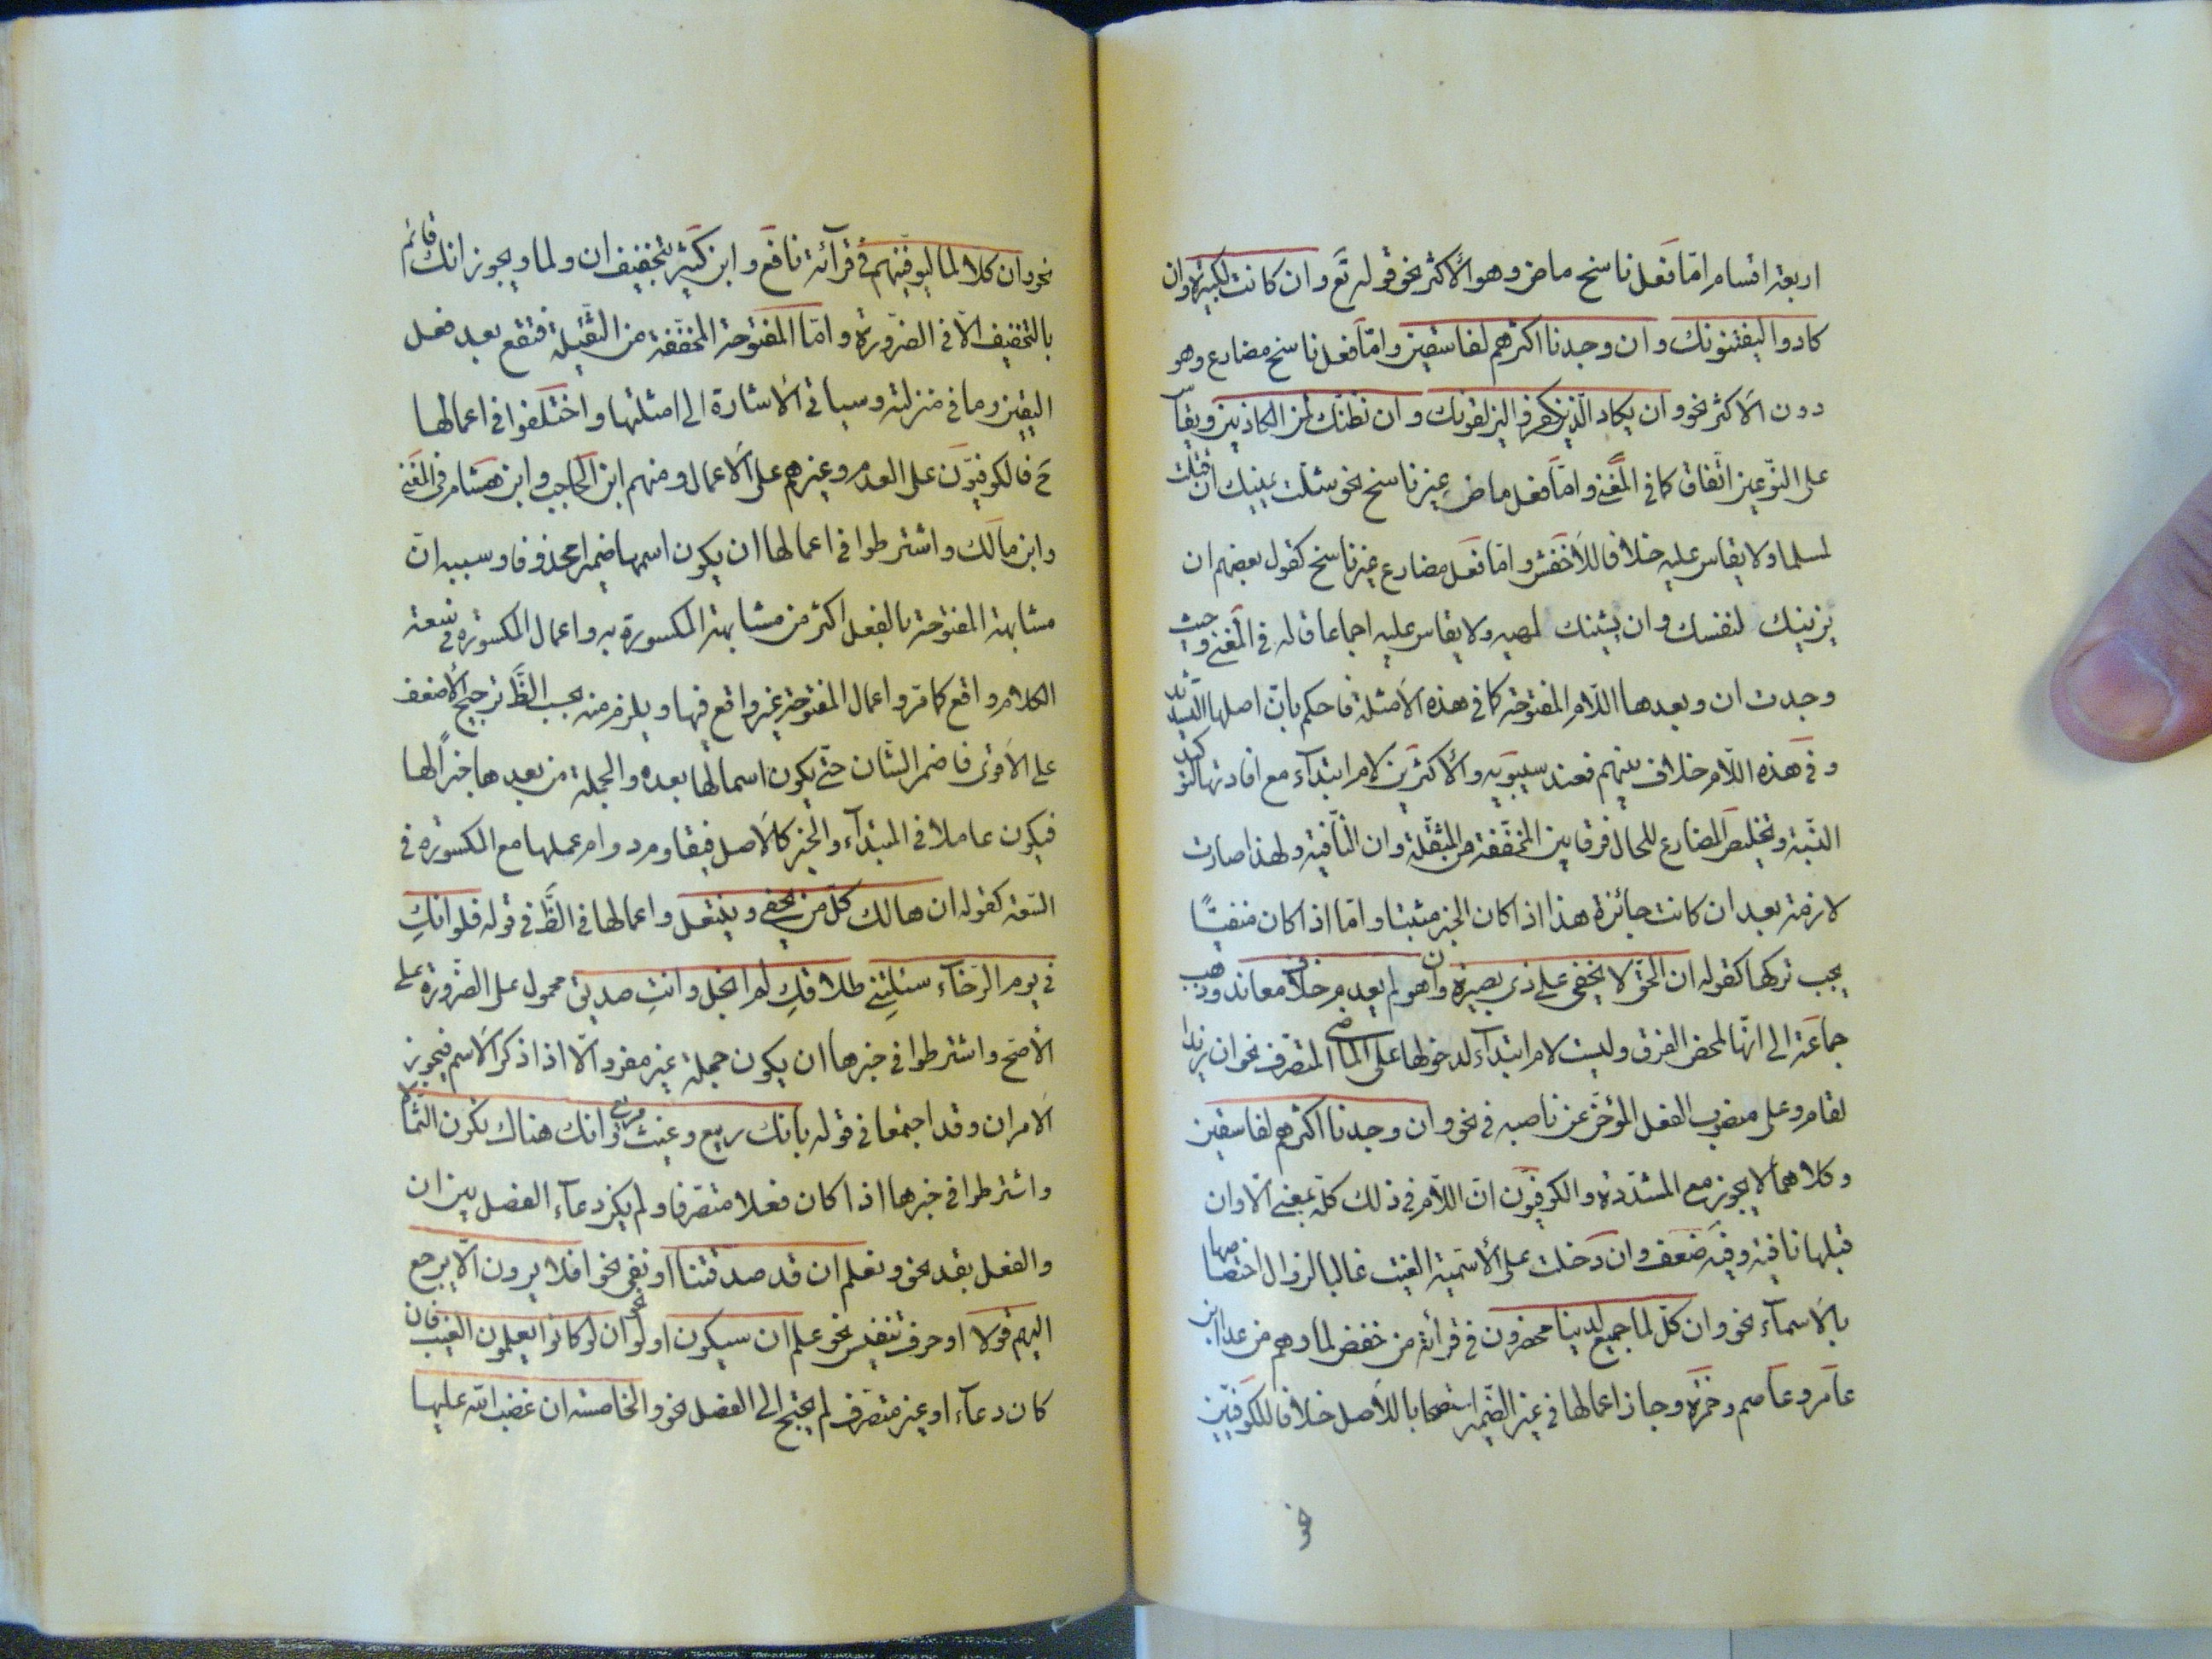 اربعة اقسام امّا فعل ناسخ ماض وهو الأكثر نحو قوله تع وان كانت لكبيرة وان
كادوا ليفتنونك وان وجدنا اكثرهم لفاسقين وامّا فعل ناسخ مضارع وهو
دون الأكثر نحو وان يكاد الّذين كفروا ليزلقونك وان نظنّك لمن الكاذبين ويقاس
على النّوعين اتّفاقا كما فى المغنى وامّا فعل ماض غير ناسخ نحو شلّت يمينك ان قتلت
لمسلما ولا يقاس عليه خلافا للأخفش وامّا فعل مضارع غير ناسخ كقول بعضهم ان
يزينك لنفسك وان يشينك لهيه ولا يقاس عليه اجماعا قاله فى المغنى وحيث
وجدت ان وبعدها اللّام المفتوحة كما فى هذه الأمثلة فاحكم بانّ اصلها التّشديد
وفى هذه اللّام خلاف بينهم فعند سيبويه والأكثرين لام ابتدآء مع افادتها لتوكيد
النّسبة وتخليص المضارع للحال فرقا بين المخفّفة من المثقّلة وان النّافية ولهذا صارت
لازمة بعد ان كانت جائزة هذا اذا كان الخبر مثبتا وامّا اذا كان منفيّا
يجب تركها كقوله ان الحقّ لا يخفى على ذى بصيرة وان هو لم يعدم خلاف معاند وذهب
جماعة الى انّها لمحض الفرق وليست لام ابتدآء لدخولها على الماضى المتصرّف نحو ان زيدا
لقام وعلى منصوب الفعل المؤخّر عن ناصبه فى نحو وان وجدنا اكثرهم لفاسقين
وكلاهما لا يجوز مع المشدّدة والكوفيّون انّ اللّام فى ذلك كلّه بمعنى الّا وان
قبلها نافية وفيه ضعف وان دخلت على الأسميّة الغيت غالبا لزوال اختصاصها
بالأسمآء نحو وان كلّ لما جميع لدينا محضرون فى قرائة من خفض لما وهم من عدا ابن
عامر وعاصم وحمزة وجاز اعمالها فى غير الضّمير استصحابا للأصل خلافا للكوفيّين
نحو
نحو وان كلا لما ليوفّينهم فى قرآئة نافع وابن كثير بتخفيف ان ولما ويجوز انك قائم
بالتّخفيف الّا فى الضّرورة وامّا المفتوحة المخفّفة من الثّقيلة فتقع بعد فعل
اليقين وما فى منزلته وسيأتى الأشارة الى امثلتها واختلفوا فى اعمالها
ح فالكوفيّون على العدم وغيرهم على الأعمال ومنهم ابن الحاجب وابن هشام فى المغنى
وابن مالك واشترطوا فى اعمالها ان يكون اسمها ضميرا محذوفا وسببه انّ
مشابهة المفتوحة بالفعل اكثر من مشابهة المكسورة به واعمال المكسورة فى سعة
الكلام واقع كما مرّ واعمال المفتوحة غير واقع فيها ويلزم منه بحسب الظّ ترجيح الأضعف
على الأقوى فاضمر الشّان حتّى يكون اسما لها بعده والجملة من بعدها خبرًا لها
فيكون عاملا فى المبتدآء والخبر كالأصل فيقاوم دوام عملها مع المكسورة فى
السّعة كقوله ان هالك كلّ من يحفى وينتعل واعمالها فى الظّ فى قوله فلو انكِ
فى يوم الرّخآء سئلتنى طلاقكِ لم ابخل وانتِ صديق محمول على الضّرورة على
الأصّح واشترطوا فى خبرها ان يكون جملة غير مفرد الّا اذا ذكر الأسم فيجوز
الأمران وقد اجتمعا فى قوله بانك ربيع وغيث مريع وانك هناك تكون الثّمالا
واشترطوا فى خبرها اذا كان فعلا متصّرفا ولم يكن دعآء الفصل بين ان
والفعل بقد نحو ونعلم ان قد صدقتنا او نفى نحو افلا يرون الّا يرجع
اليهم قولا او حرف تنفيس نحو علم ان سيكون او لو نحو ان لو كانوا يعلمون الغيب فان
كان دعآء او غير متصّرف لم يحتج الى الفصل نحو والخامسة ان غضب اللّه عليها